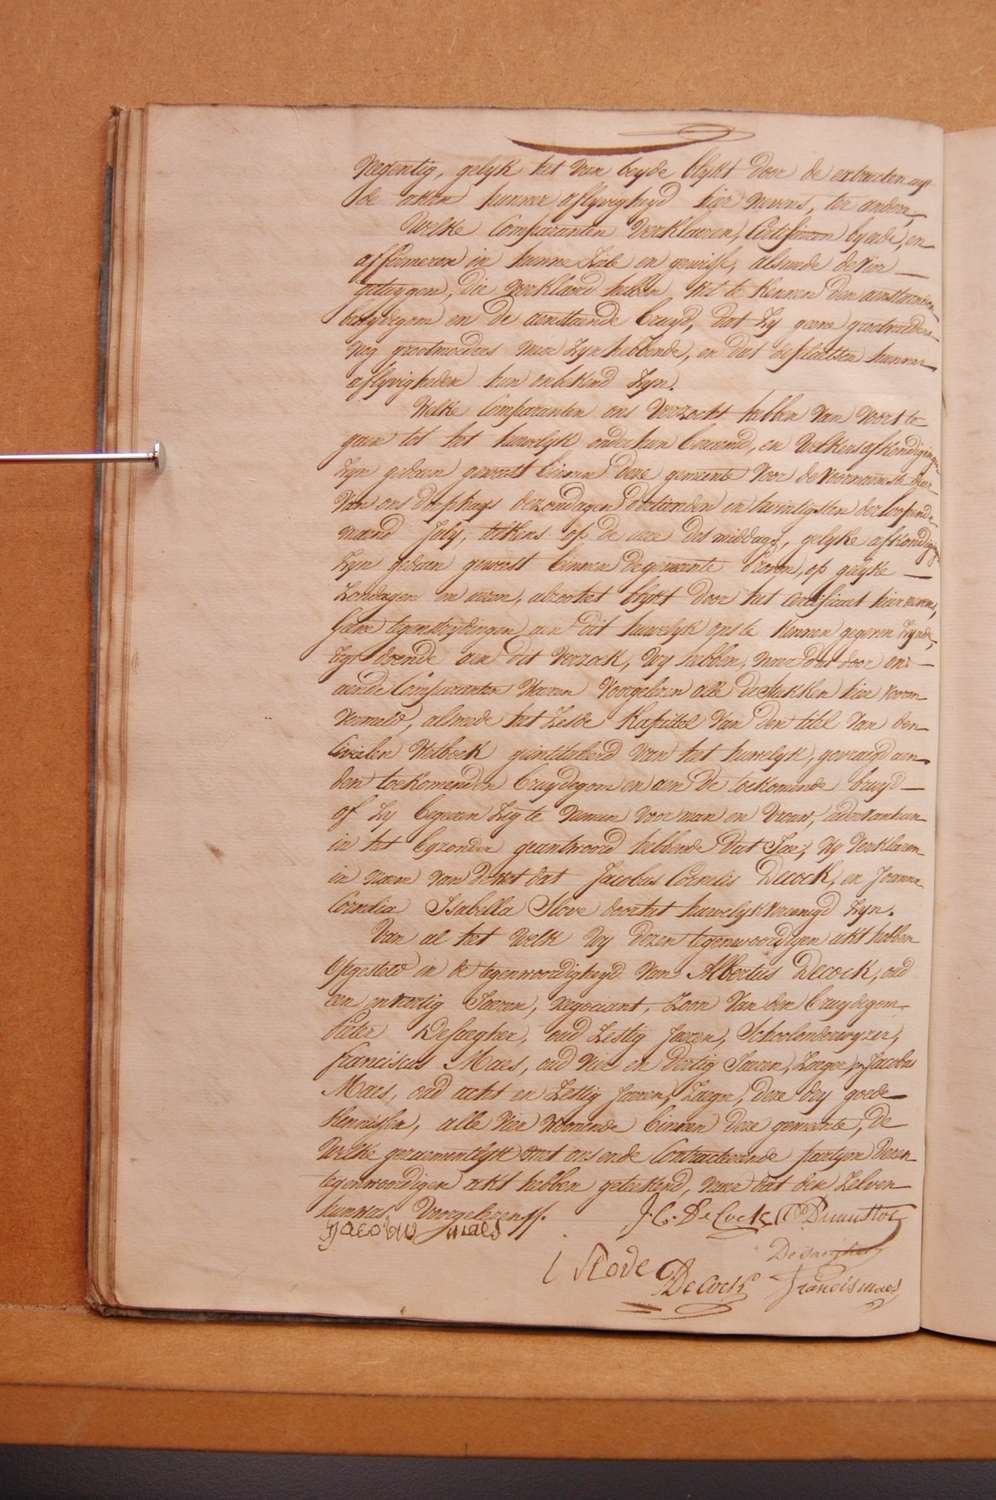 negentig, gelyk het van beyde blykt door de extracten uyt
de akten hunner aflyvigheyd hier nevens, ten anderen,
Welke Comparanten verklaeren, Certificeren by eede, en
affirmeren in hunne Ziele en gewisse, alsmede de vier
getuygen, die verklaerd hebben wel te kennen den aenstaenden
bruydegom en de aenstaende bruyd, dat zy geene grootvaders
nog grootmoeders meer zyn hebbende, en dat de plaetsen hunner
aflyvigheden hun onbekend zyn.
Welke Comparanten ons verzocht hebben van voort te
gaen tot het huwelyk onder hun beraemd, en welkers afkondigingen
zyn gedaen geweest binnen deze gemeente voor de voornaemste deur
van ons dorphuys de zondagen derthienden en twintigsten der loopende
maend July, telkens op de ure des middags, gelyke afkondigingen
zyn gedaen geweest binnen de gemeente op gelyke
Zondagen en uren, alzoo het blykt door het certificaet hier nevens,
Geene tegenstrydigheden aen dit huwelyk ons te kennen gegeven zynde,
regt doende aen dit verzoek, wy hebben, naer dat door ons
aende Comparanten waren voorgelezen alle de stukken hier voren
vermeld, alsmede het zesde kapittel van den titel van den
Civielen Wetboek geintituleerd van het huwelyk, gevraegd aen
den toekomenden bruydegom en aen de toekomende bruyd
of zy begeiren zig te nemen voor man en vrouw, ider van hun
in het byzonder geantwoord hebbende dat Jae; wy verklaeren
in naem van de wet dat Jacobus Cornelis Decock, en Joanna
Cornelia Isabella Slove door het huwelyk vereenigd zyn.
Van al het welk wy dezen tegenwoordigen akt hebben
opgesteld in de tegenwoordigheyd van Albertus Decock, oud
een en veertig Jaeren, negociant, zoon van den bruydegom
Pieter Desaegher, oud zestig Jaeren, Schoolonderwyzer,
Franciscus Maes, oud vier en dertig Jaeren, Zaeger, en Jacobus
Maes, oud acht en zestig Jaeren, Zaeger, deze dry goede
kennissen, alle vier woonende binnen deze gemeente, de
welke gezaementlyk met ons ende Contracteerende partyen dezen
tegenwoordigen akt hebben geteekend, naer dat den zelven
hun was voorgelezen.
J. C. De Cock
Jacobus maes
Desaegher
I Slove
De Cock
francis maes